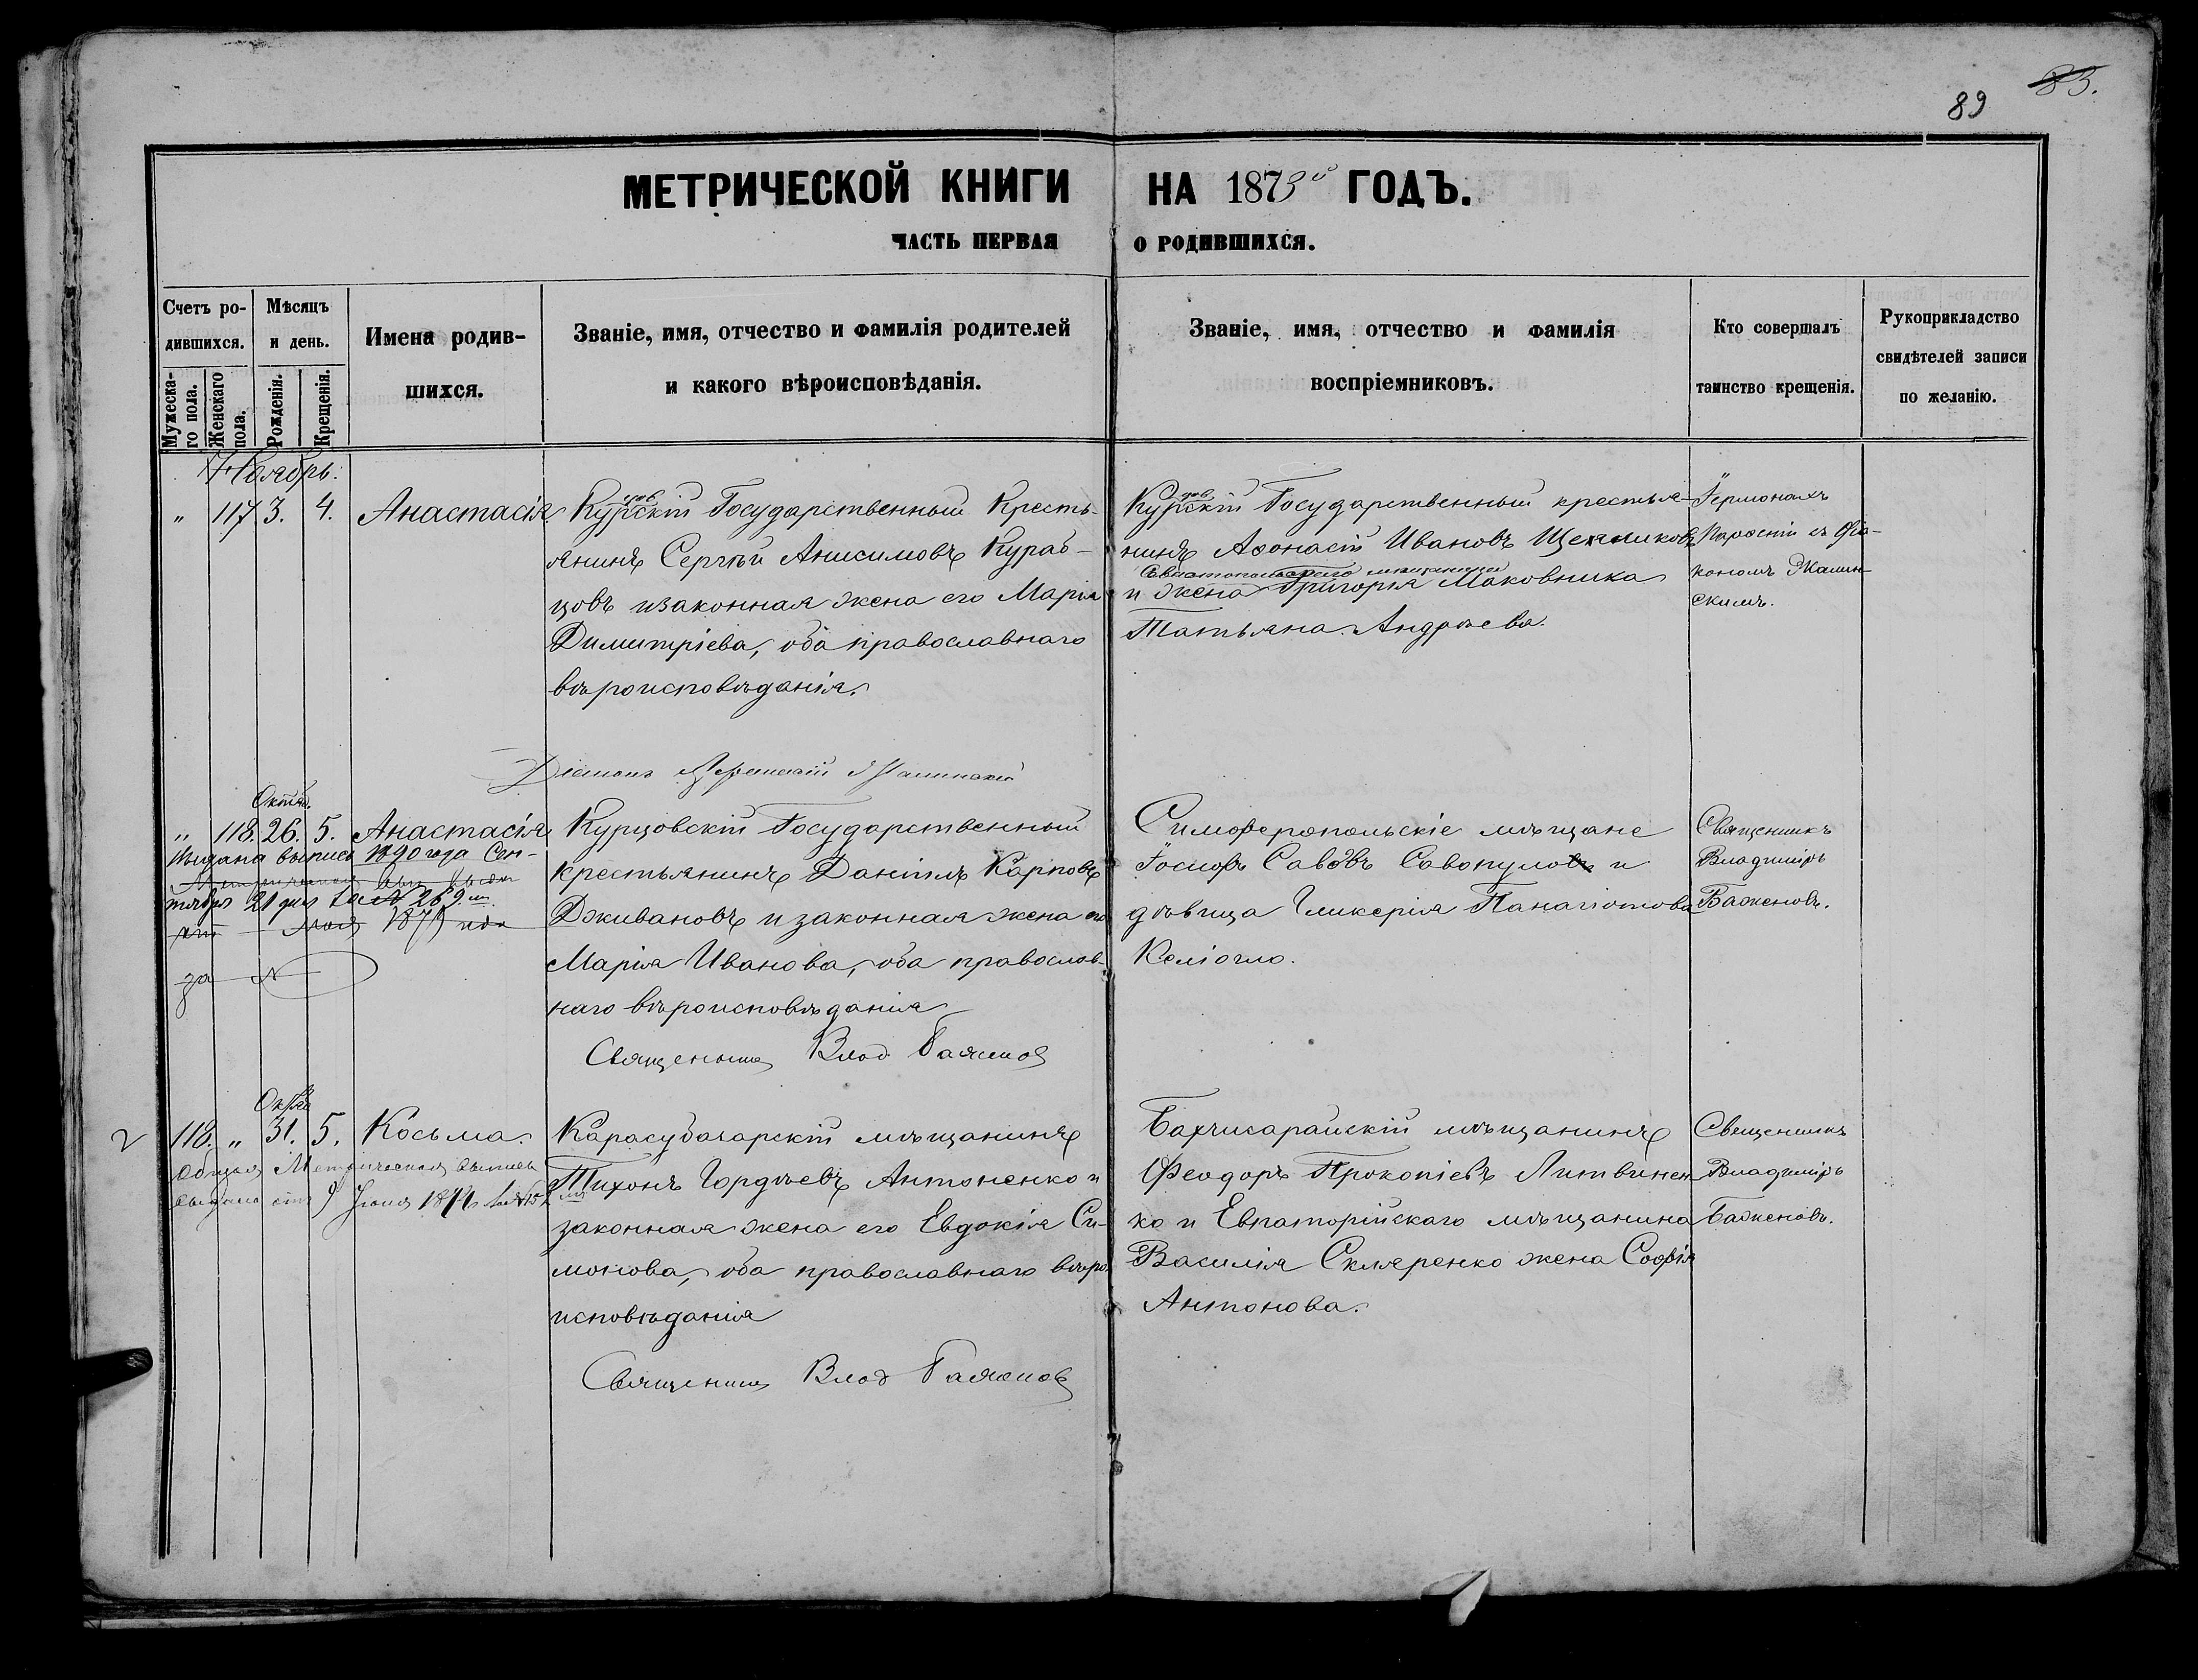 89
83.
МЕТРИЧЕСКОЙ КНИГИ НА 1873й ГОДЪ.
ЧАСТЬ ПЕРВАЯ О РОДИВШИХСЯ.
Счетъ ро-
дившихся.
Мужеска-
го пола.
Женскаго
пола.
Мѣсяцъ
и день.
Рожденія.
Крещенія.
Имена родив-
шихся.
Званіе, имя, отчество и фамилія родителей
и какого вѣроисповѣданія.
Званіе, имя, отчество и фамилія
воспріемниковъ.
Кто совершалъ
таинство крещенія.
Рукоприкладство
свидѣтелей записи
по желанію.
Ноябрь.
" 117 3. 4. Анастасія
цов
Курскій Государственный Кресть-
янинъ Сергѣй Анисимовъ Кураб-
цовъ и законная жена его Марія
Димитріева, оба православнаго
вѣроисповѣданія.
цов
Курскій Государственный крестья-
нинъ Афонасій Ивановъ Щекликовъ
и жена Григорія Маковника
Татьяна Андреева.
Іеромонахъ
Парфеній съ діа-
кономъ Жалин-
скимъ.
Діаконъ
Октяб.
" 118. 26. 5. Анастасія
Выдана выпись 1890 года Сен-
тября 21 дня за № 269
за №
Курцовскій Государственный
крестьянинъ Даніилъ Карповъ
Дживановъ и законная жена его
Марія Иванова, оба православ-
наго вѣроисповѣданія
Священникъ Влад Баженов
Симферопольскіе мѣщане
Іосифъ Саввовъ Савопуло и
дѣвица Гликерія Панагіотова
Келіогло.
Священникъ
Владиміръ
Баженовъ.
Октяб
2 118. " 31. 5. Косьма.
Общая Метрическая выпись
выдана отъ 9 Іюня
Карасубазарскій мѣщанинъ
Тихонъ Гордѣевъ Антоненко и
законная жена его Евдокія Си-
монова, оба православнаго вѣро
исповѣданія
Священникъ Влад Баженов
Бахчисарайскій мѣщанинъ
Феодоръ Прокопіевъ Литвинен
ко и Евпаторійскаго мѣщанина
Василія Скляренко жена Софія
Антонова.
Священникъ
Владиміръ
Баженовъ.